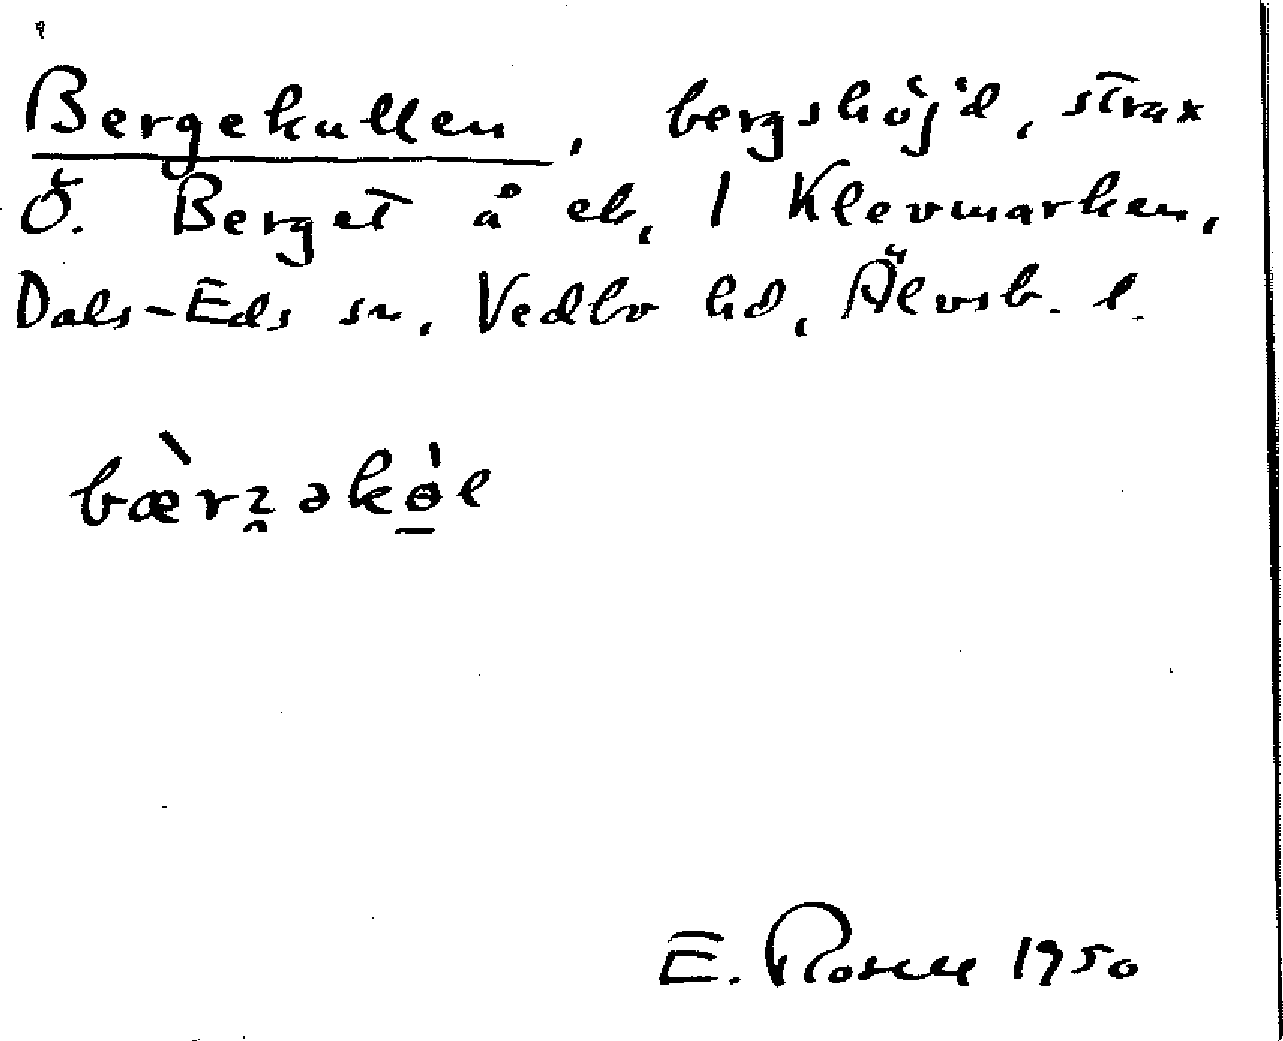 Bergekullen, bergshöjd, strax
Ö. Berget å eb, 1 Klevmarken,
Dals-Eds sn, Vedbo hd, Älvsb. l.
bæ̀rʒ̯əkɵ̠̍l
E. Rosell 1950